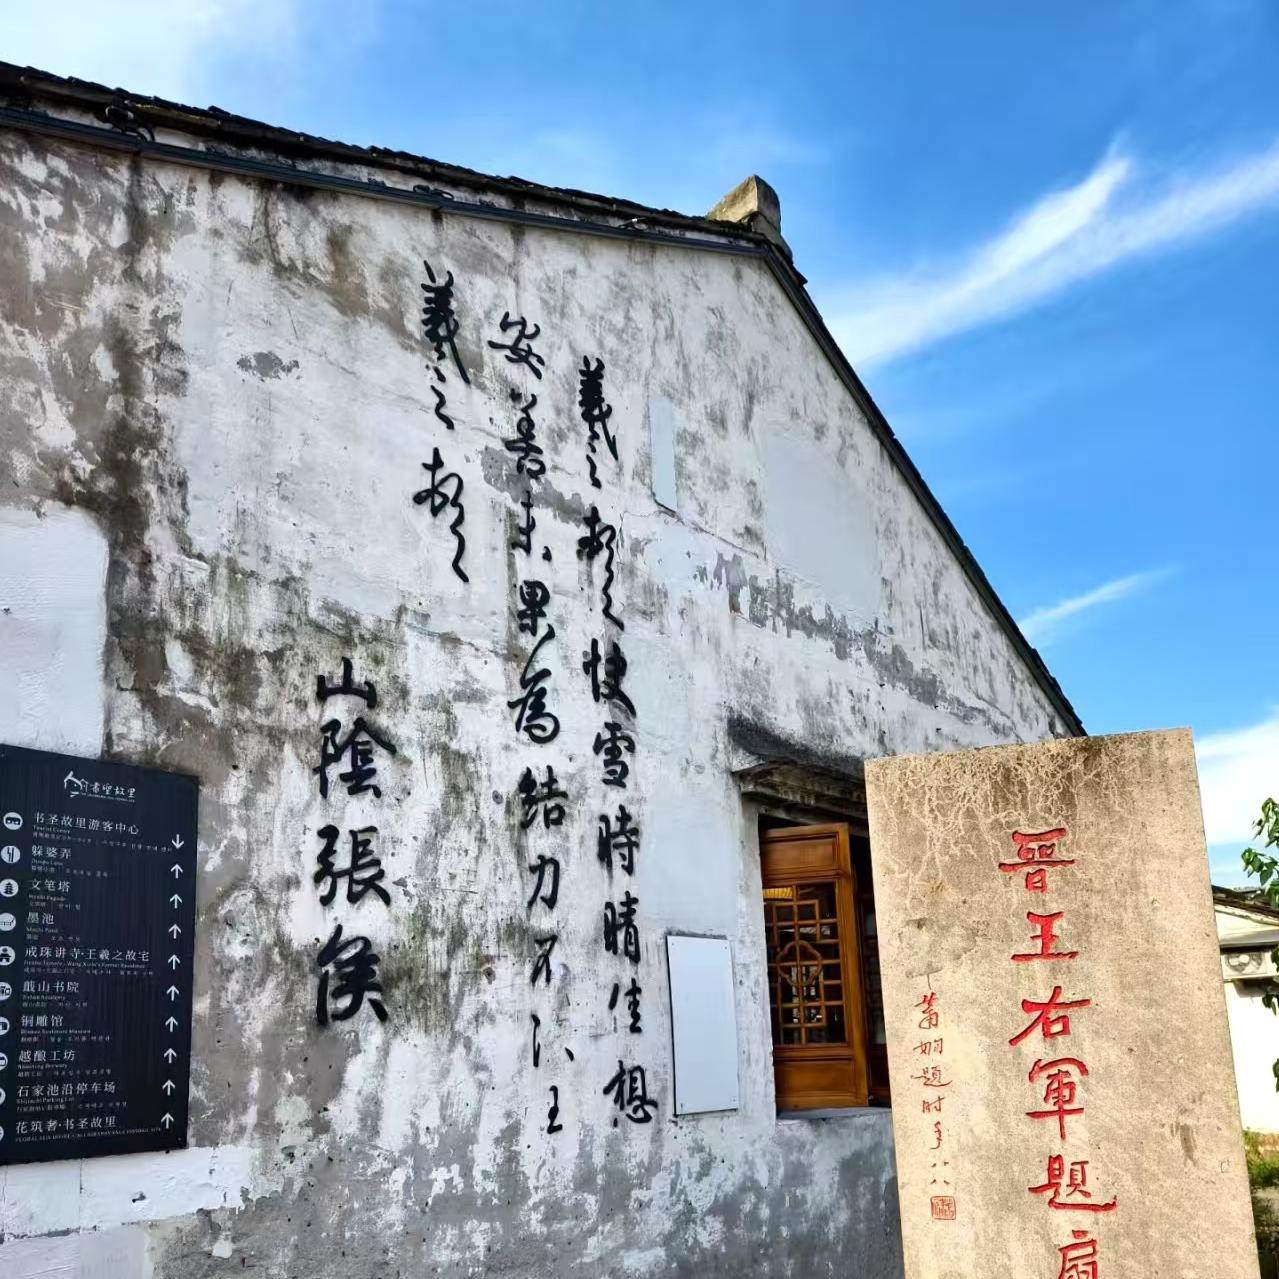 羲之頓首快雪時晴佳想
安善未果為結力不次王
羲之頓首
山陰張侯
書聖故里
书圣故里游客中心
躲婆弄
文笔塔
墨池
戒珠讲寺·王羲之故宅
蕺山书院
铜雕馆
越酿工坊
石家池沿停车场
花筑奢·书圣故里
晋王右軍題扇
十萧娴题时年八八